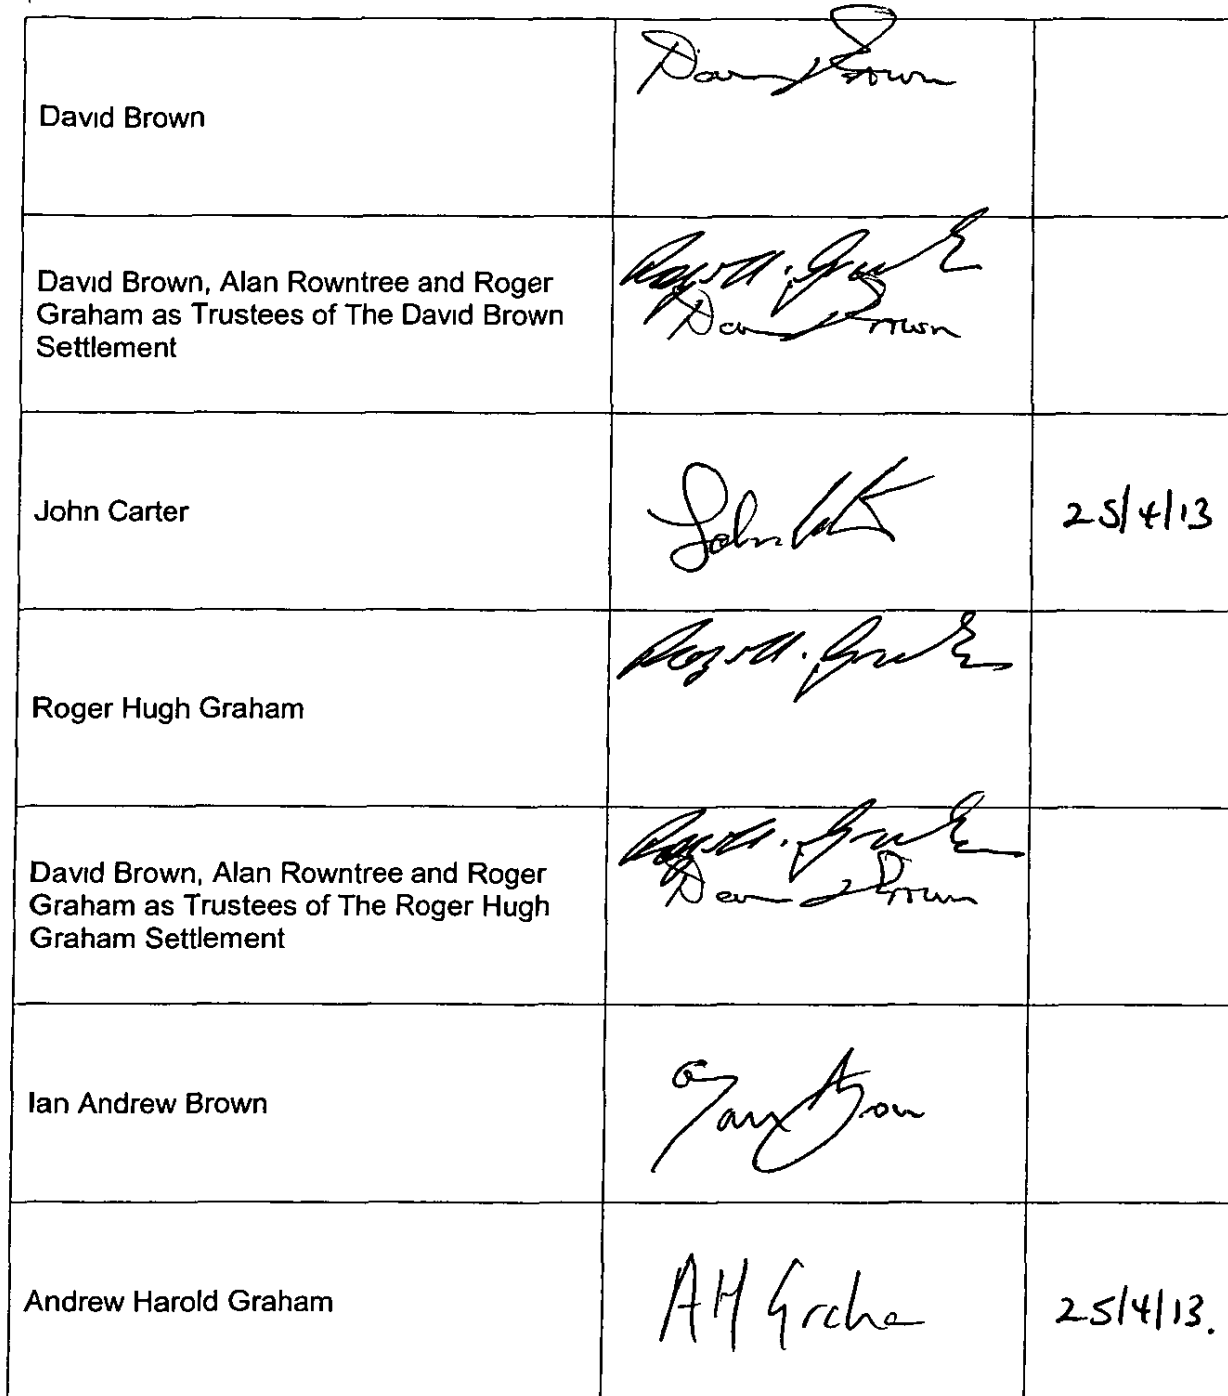 David Brown
David Brown
David Brown, Alan Rowntree and Roger
Graham as Trustees of The David Brown
Settlement
Roger H. Graham
David Brown
John Carter
John
25/4/13
Roger Hugh Graham
Roger H. Graham
David Brown, Alan Rowntree and Roger
Graham as Trustees of The Roger Hugh
Graham Settlement
Roger H. Graham
David Brown
Ian Andrew Brown
Andrew Harold Graham
AH Graha
25/4/13.